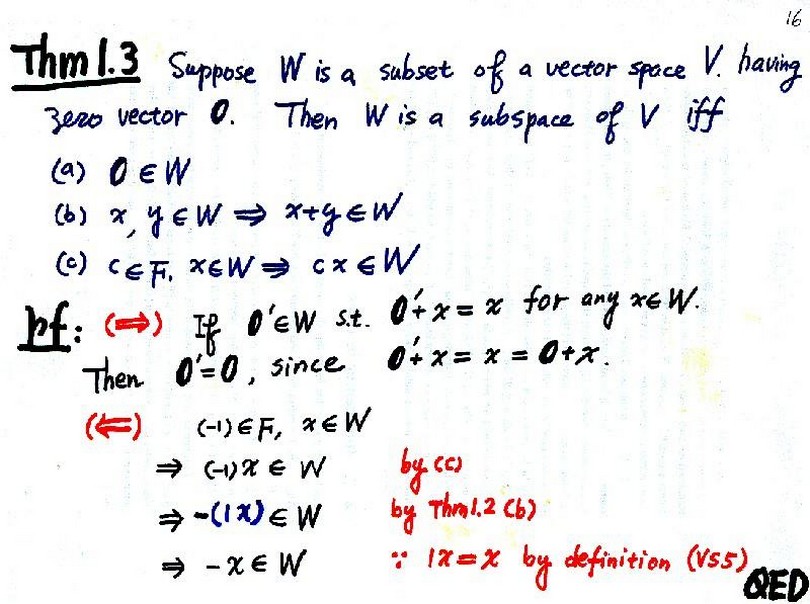 16
Thm 1.3 Suppose W is a subset of a vector space V. having
zero vector 0. Then W is a subspace of V iff
(a) 0 ∈ W
(b) x, y ∈ W ⇒ x+y ∈ W
(c) c ∈ F, x ∈ W ⇒ cx ∈ W
pf: (⇒) If 0' ∈ W s.t. 0'+x = x for any x ∈ W.
Then 0'=0, since 0'+x = x = 0+x.
(⇐) (-1) ∈ F, x ∈ W
⇒ (-1)x ∈ W by (c)
⇒ -(1x) ∈ W by Thm 1.2 (b)
⇒ -x ∈ W ∵ 1x = x by definition (VS5)
QED